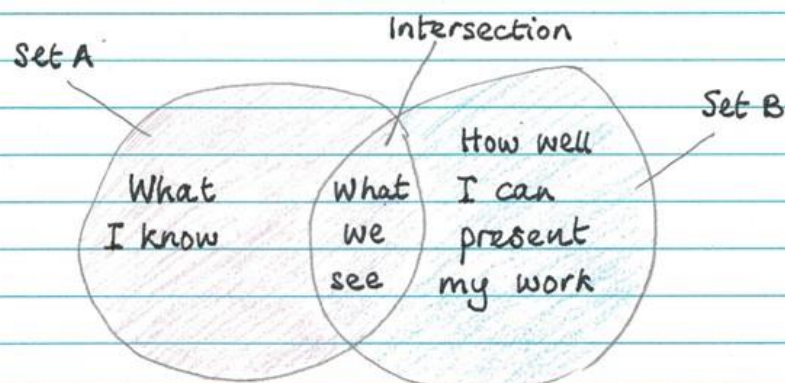 Intersection
Set A
Set B
What
I know
What
we
see
How well
I can
present
my work